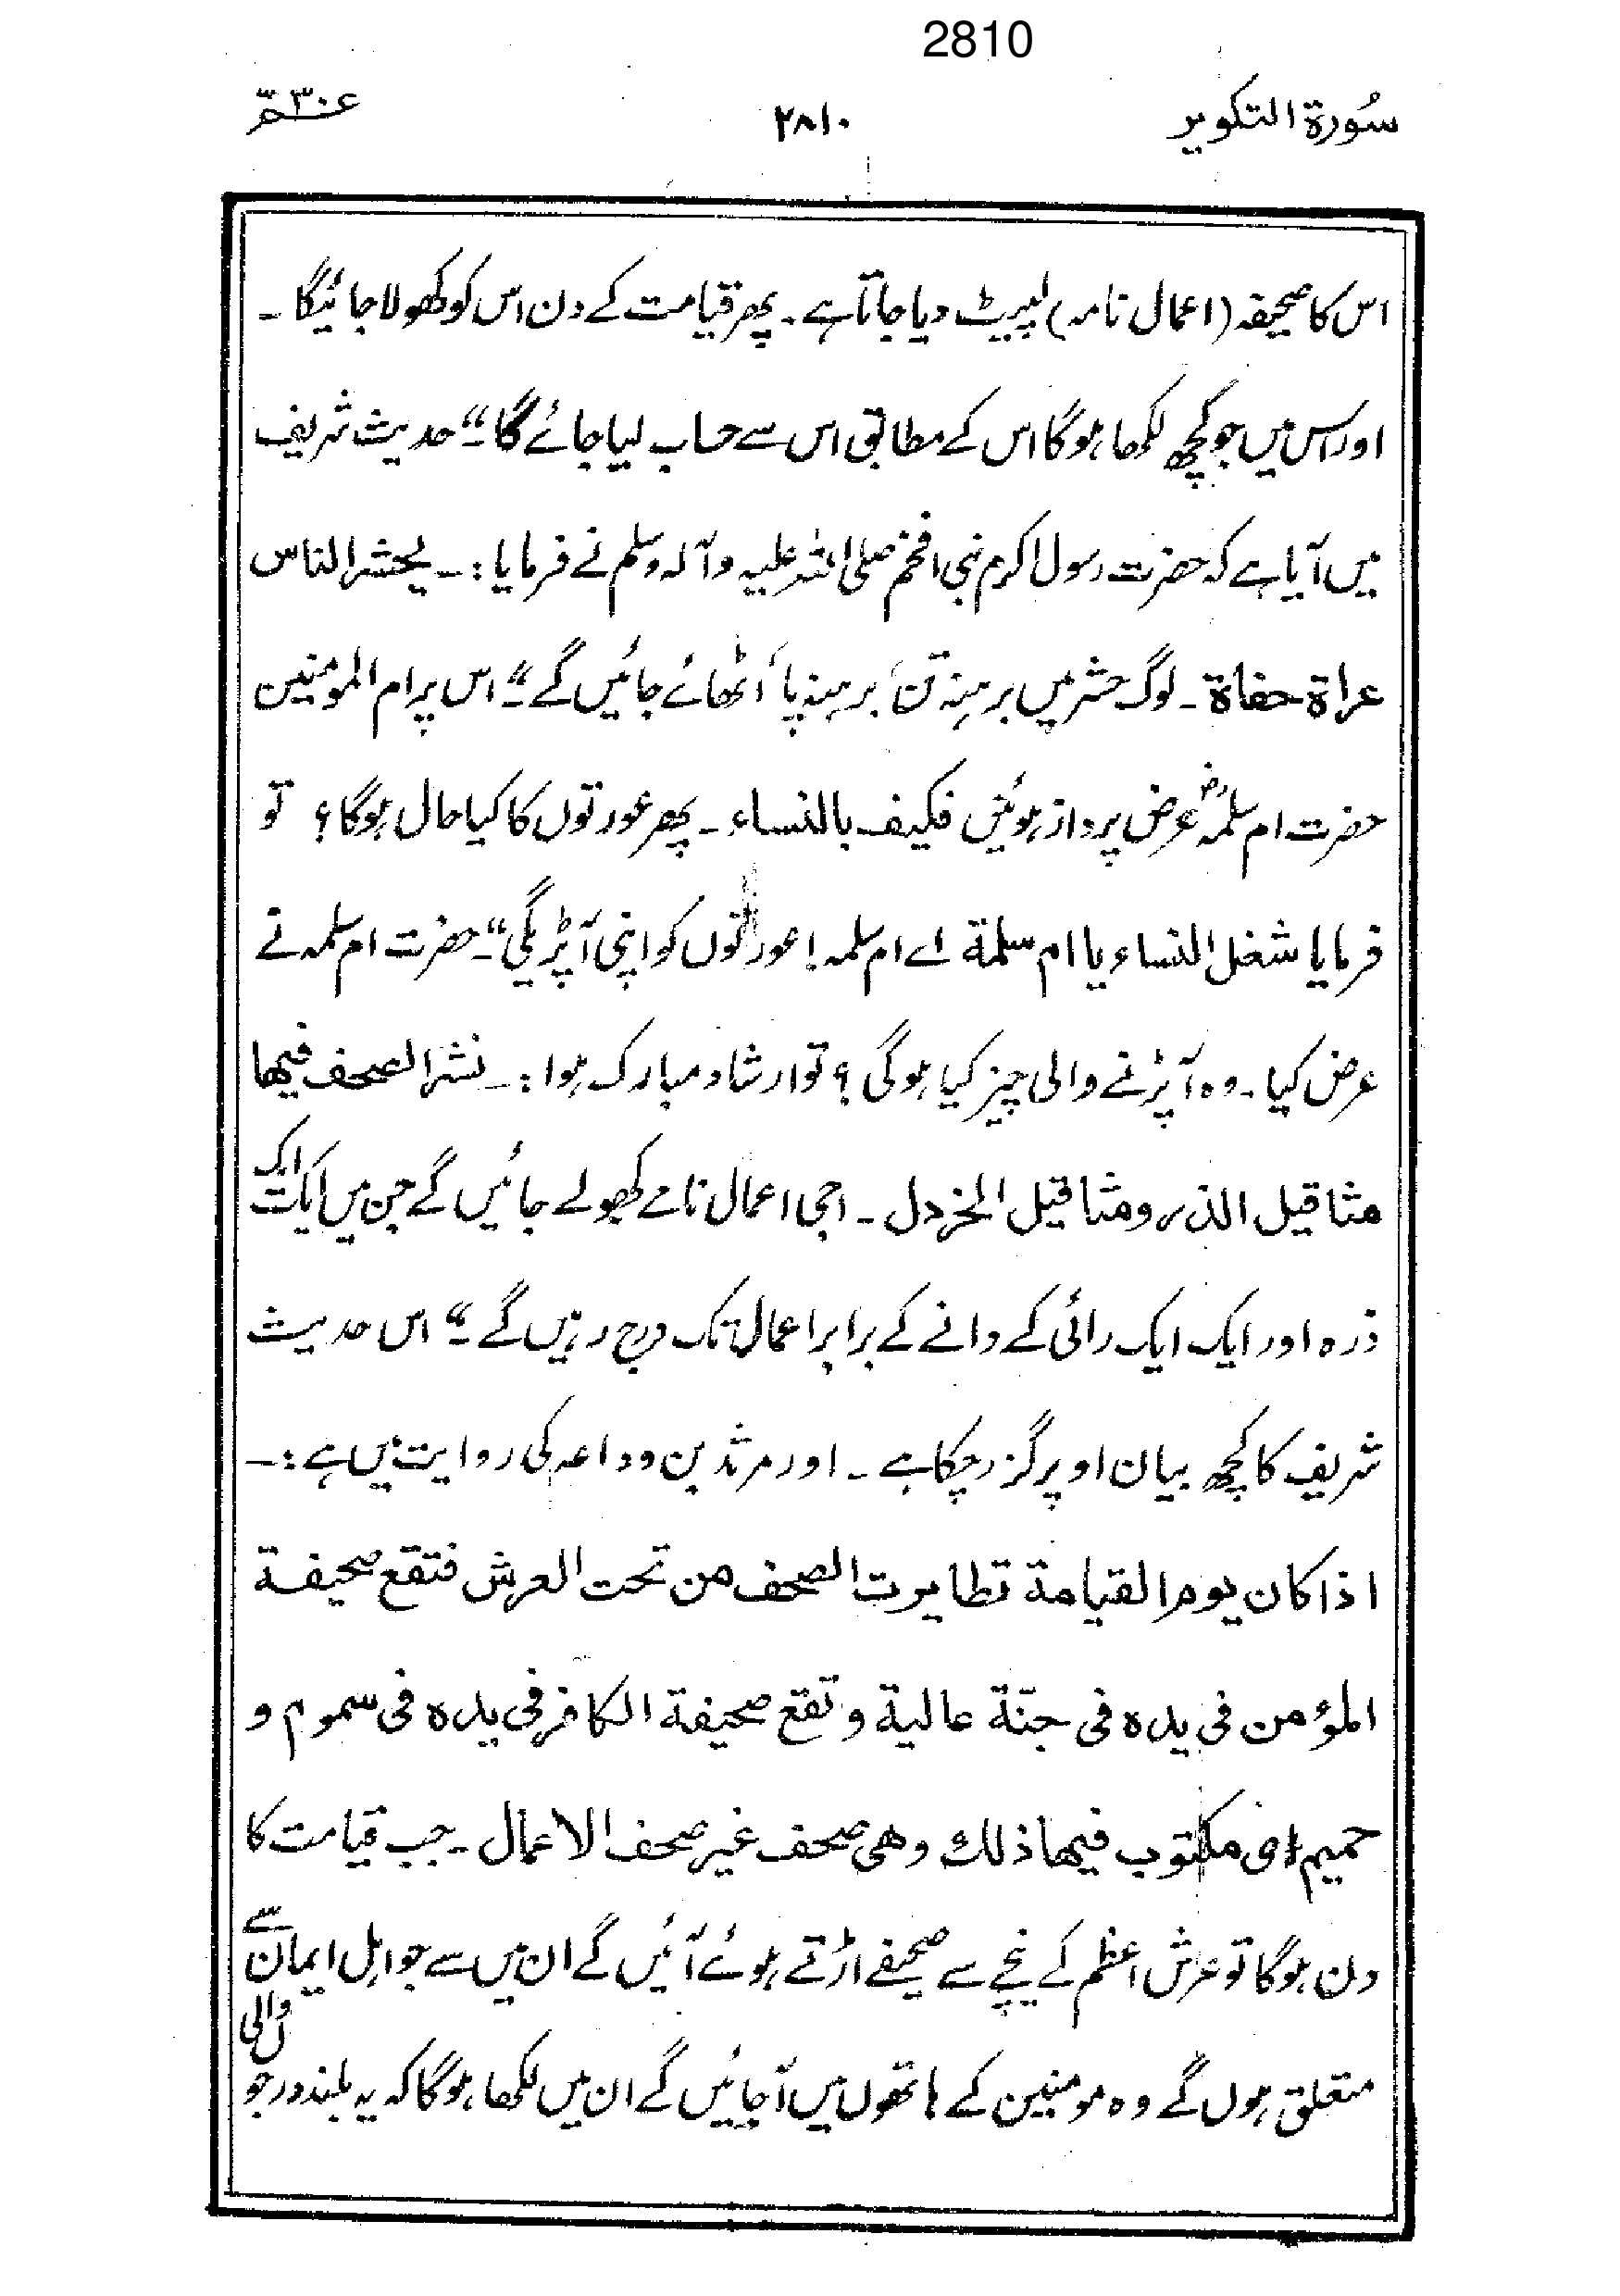 2810
سُورۃ التکویر ۲۸۱۰ عمّ ۳۰
اس کا صحیفہ (اعمال نامہ) لپیٹ دیا جاتا ہے۔ پھر قیامت کے دن اس کو کھولا جائیگا۔
اور اس میں جو کچھ لکھا ہوگا اس کے مطابق اس سے حساب لیا جائے گا۔“ حدیث شریف
میں آیا ہے کہ حضرت رسول اکرم نبی افخم صلی اللہ علیہ وآلہ وسلم نے فرمایا :۔ یحشر الناس
عراة حفاة۔ لوگ حشر میں برہنہ تن، برہنہ پا اُٹھائے جائیں گے۔“ اس پر ام المومنین
حضرت ام سلمہؓ عرض پرداز ہوئیں فکیف بالنساء۔ پھر عورتوں کا کیا حال ہوگا؟ تو
فرمایا شغل النساء یا ام سلمة اے ام سلمہ! عورتوں کو اپنی آپڑیگی“۔ حضرت ام سلمہ نے
عرض کیا۔ وہ آپڑنے والی چیز کیا ہوگی؟ تو ارشاد مبارک ہوا :۔ نشر الصحف فیها
مثاقیل الذر ومثاقیل الخردل۔ اجی اعمال نامے کھولے جائیں گے جن میں ایک ایک
ذرہ اور ایک ایک رائی کے دانے کے برابر اعمال تک درج رہیں گے۔“ اس حدیث
شریف کا کچھ بیان اوپر گزر چکا ہے۔ اور مرثد بن وداعہ کی روایت میں ہے :۔
اذا كان يوم القيامة تطايرت الصحف من تحت العرش فتقع صحيفة
المؤمن فى يده فى جنّة عالية وتقع صحيفة الكافر فى يده فى سموم و
حميم اى مكتوب فيها ذلك وهى صحف غير صحف الاعمال۔ جب قیامت کا
دن ہوگا تو عرش اعظم کے نیچے سے صحیفے اڑتے ہوئے آئیں گے ان میں سے جو اہل ایمان سے
متعلق ہوں گے وہ مومنین کے ہاتھوں میں آجائیں گے ان میں لکھا ہوگا کہ یہ بلند درجوں والی